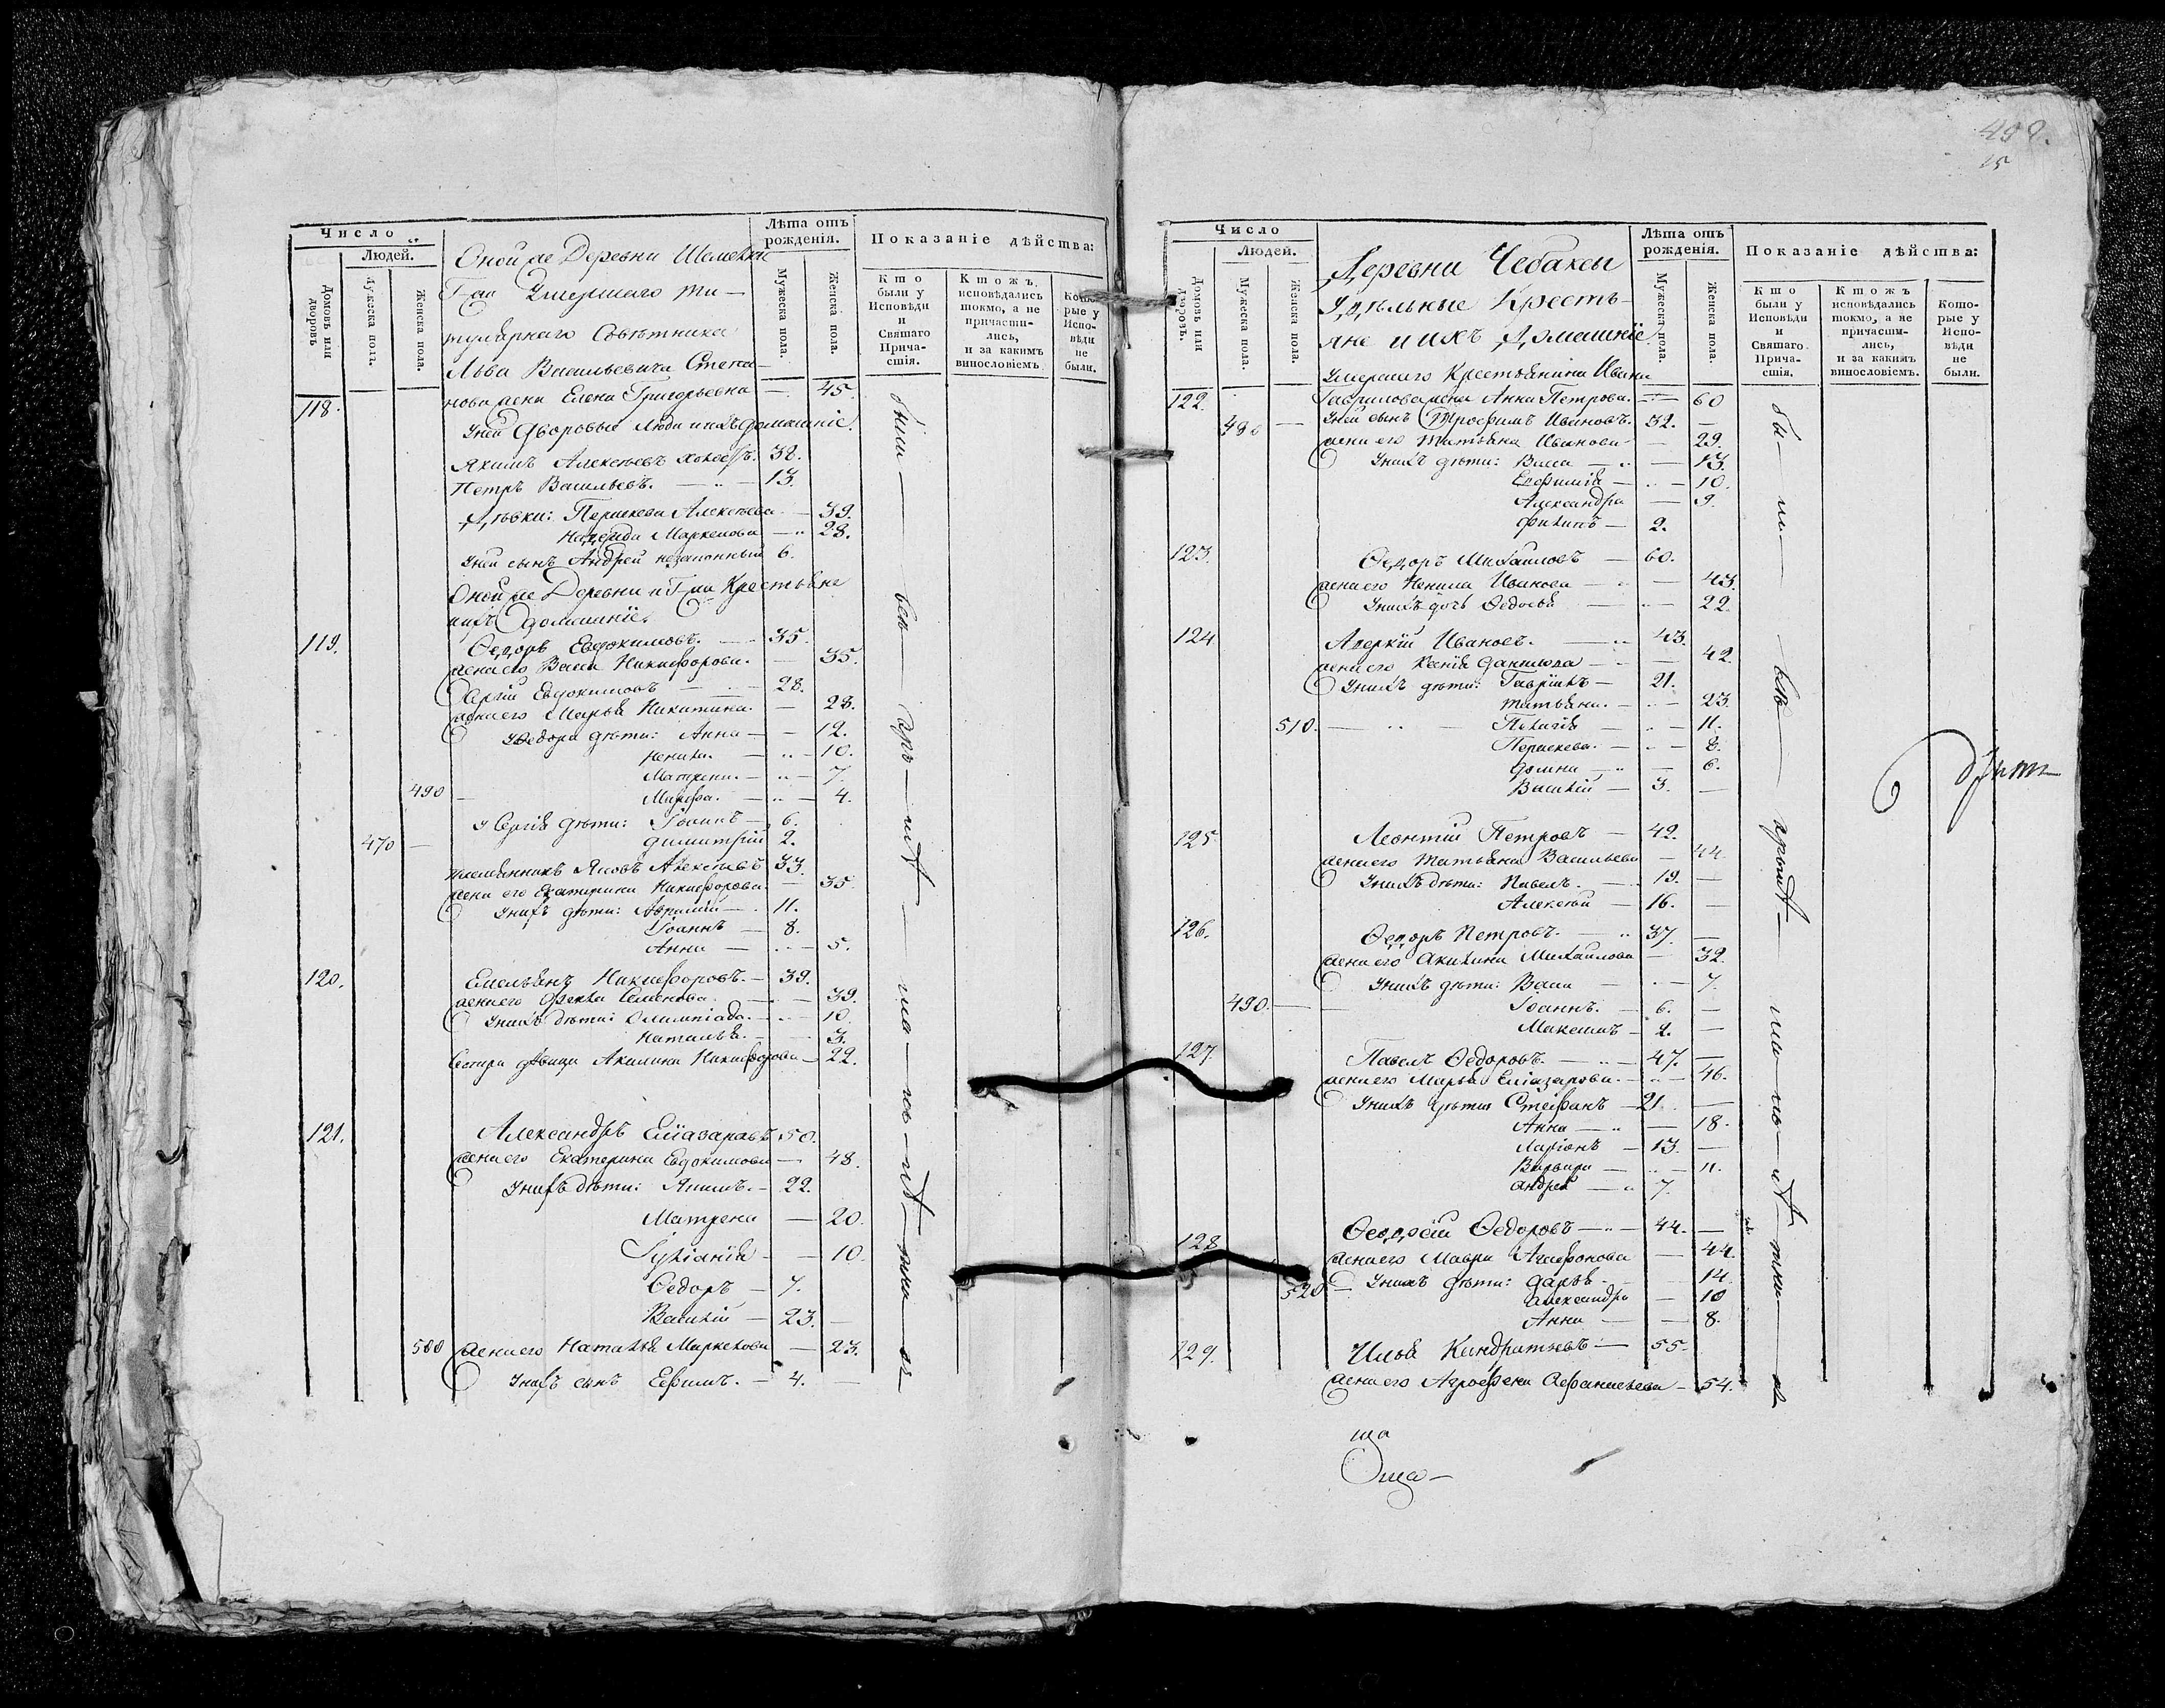 Число
Людей.
Домовъ или дворовъ
Мужеска пола.
Женска пола.
Лѣта отъ рожденія.
Мужеска пола.
Женска пола.
Показаніе дѣйства:
Кто были у Исповѣди и Святаго Прича-стія.
Ктожъ исповѣдались токмо, а не причасти-лись, и за какимъ винословіемъ
Кото-рые у Испо-вѣди не были.
Оной же Деревни
Г-жа Умершаго ти-
тулярнаго Совѣтника
Льва Васильевича Степа-
118. нова жена Елена Григорьевна — 45.
У ней Дворовые люди и ихъ домашніе.
Якимъ Алексѣевъ холостъ. 38.
Петръ Васильевъ. — 13.
Дѣвки: Параскева Алексѣева — 39.
Надежда Маркелова — 28.
У ней сынъ Андрей незаконный 6.
Оной же Деревни и Г-жи Крестьяне
и ихъ домашніе.
119. Ѳедоръ Евдокимовъ. — 35.
жена его Васса Никифорова. — 35.
Сергій Евдокимовъ — 28.
жена его Марья Никитина. — 28.
У Ѳедора дѣти: Анна — 12.
Ненила. — 10.
Матрена. — 7.
490 — Марфа. — 4.
У Сергія дѣти: Іоаннъ — 6.
470 — Димитрій 2.
племянникъ Яковъ Алексѣевъ 33.
жена его Екатерина Никифорова. — 35.
У нихъ дѣти: Авраамій — 11.
Іоаннъ — 8.
Анна — 5.
120. Емельянъ Никифоровъ. — 39.
жена его Ѳекла Семенова. — 39.
У нихъ дѣти: Олимпіада. — 10.
Наталья. — 3.
Сестра дѣвица Акилина Никифорова — 22.
121. Александръ Еліазаровъ 50.
жена его Екатерина Евдокимова — 48.
У нихъ дѣти: Якимъ. — 22.
Матрена — 20.
Іуліанія — 10.
Ѳедоръ — 7.
Василій — 23. —
500 жена его Наталья Маркелова — 23.
У нихъ сынъ Ефимъ. — 4. —
15
Число
Людей.
Домовъ или дворовъ.
Мужеска пола.
Женска пола.
Лѣта отъ рожденія.
Мужеска пола.
Женска пола.
Показаніе дѣйства:
Кто были у Исповѣди и Святаго Прича-стія.
Ктожъ исповѣдались токмо, а не причасти-лись, и за какимъ винословіемъ.
Кото-рые у Испо-вѣди не были.
Деревни Чебаксы
Удѣльные Кресть-
яне и ихъ Домашніе
Умершаго Крестьянина Ивана
122. Гаврилова жена Анна Петрова. — 60
480 — У ней сынъ Трофимъ Ивановъ. 32. —
жена его Татьяна Иванова — 29.
У нихъ дѣти: Васса — 13.
Евфимія — 10.
Александра — 9.
Филипъ — 2.
123. Ѳедоръ Михайловъ — 60.
жена его Ненила Иванова — 43.
У нихъ дочь Ѳедосья — 22.
124 Аверкій Ивановъ. — 43.
жена его Ксенія Данилова — 42.
У нихъ дѣти: Гавріилъ — 21.
Татьяна. — 23.
510. — Пелагія — 11.
Параскева. — 8.
Домна — 6.
Василій — 3. —
125. Леонтій Петровъ — 42.
жена его Татьяна Васильева — 44.
У нихъ дѣти: Павелъ. — 19. —
Алексѣй — 16. —
126. Ѳедоръ Петровъ. — 37. —
жена его Акилина Михайлова — 32.
У нихъ дѣти: Васса — 7.
490. — Іоаннъ. — 6. —
Максимъ — 2. —
127 Павелъ Ѳедоровъ. — 47. —
жена его Марья Еліазарова. — 46.
У нихъ дѣти Стефанъ — 21. —
Анна — 18.
Ларіонъ — 13. —
Варвара — 11.
Андрей — 7.
128 Ѳедосій Ѳедоровъ — 44. —
жена его Мавра Агафонова — 44.
520 — У нихъ дѣти: Дарья — 14
Александра — 10
Анна — 8.
129. Илья Кандратьевъ — 55.
жена его Агрофена Афанасьева — 54.